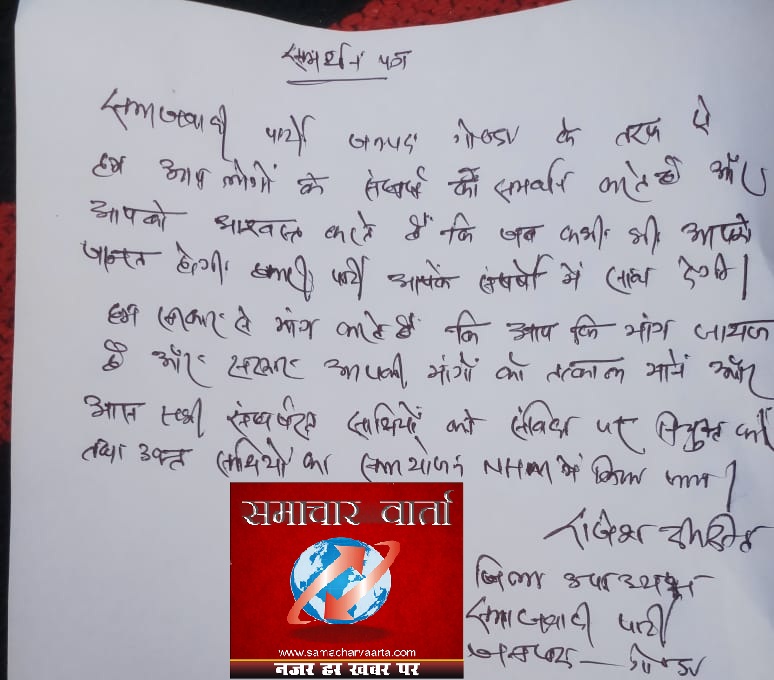 समर्थन पत्र
समाजवादी पार्टी जनपद गोण्डा के तरफ से
हम आप लोगों के संघर्ष को समर्थन करते हैं और
आपको आश्वस्त करते हैं कि जब कभी भी आपको
जरूरत होगी हमारी पार्टी आपके संघर्षों में साथ देगी।
हम सरकार से मांग करते हैं कि आप कि मांग जायज
है और सरकार आपकी मांगों को तत्काल माने और
आप सभी संघर्षरत साथियों को संविदा पर नियुक्त करें
तथा उक्त साथियों का समायोजन NHM में किया जाय।
राजेश दीक्षित
जिला उपाध्यक्ष
समाजवादी पार्टी
जनपद – गोण्डा
समाचार वार्ता
www.samacharvaarta.com
नजर हर खबर पर